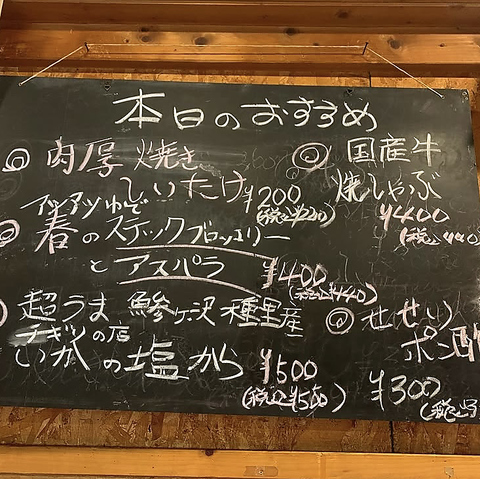 本日のおすすめ
肉厚 焼き
しいたけ ¥200
(税込¥220)
アツアツゆで
春のスティックブロッコリー
とアスパラ ¥400
(税込¥440)
超うま 鰺ヶ沢 種里産
チギリの店
いかの塩から ¥500
(税込¥550)
国産牛
焼しゃぶ
¥400
(税込440)
せせり
ポン酢
¥300
(税込